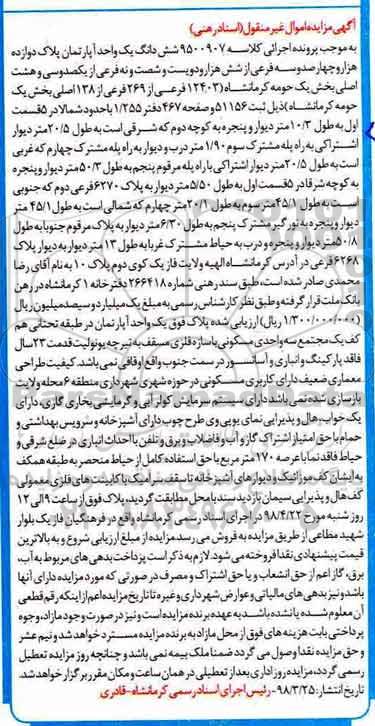 آگهی مزایده اموال غیر منقول (اسناد رهنی)
به موجب پرونده اجرائی کلاسه ۹۵۰۰۹۰۷ شش دانگ یک واحد آپارتمان پلاک دوازده
هزار و چهارصد و سه فرعی از شش هزار و دویست و شصت و نه فرعی از یکصد و سی و هشت
اصلی بخش یک حومه کرمانشاه (۱۲۴۰۳ فرعی از ۲۶۹ فرعی از ۱۳۸ اصلی بخش یک
حومه کرمانشاه) ذیل ثبت ۵۱۱۵۶ و صفحه ۴۶۷ دفتر ۱/۲۵۵ با حدود شمالا در ۵ قسمت
اول به طول ۱۰/۳ متر دیوار و پنجره به کوچه دوم که شرقی است به طول ۲۰/۵ متر دیوار
اشتراکی به راه پله مشترک سوم ۱/۹۰ متر درب و دیوار به راه پله مشترک چهارم که غربی
است به طول ۲۰/۵ متر دیوار اشتراکی با راه پله مرقوم پنجم به طول ۵۰/۳ متر دیوار و پنجره
به کوچه شرقا در ۵ قسمت اول به طول ۵/۵۰ متر دیوار به پلاک ۶۲۷۰ فرعی دوم که جنوبی
است به طول ۴۵/۱ متر سوم به طول ۲۰/۱ متر چهارم که شمالی است به طول ۴۵/۱ متر
دیوار و پنجره به نورگیر مشترک پنجم به طول ۶/۳۰ متر دیوار به پلاک مرقوم جنوبا به طول
۵۰/۸ متر دیوار و پنجره و درب به حیاط مشترک غربا به طول ۱۳ متر دیوار به دیوار پلاک
۶۲۶۸ فرعی در آدرس کرمانشاه الهیه ولایت فاز یک کوی دوم پلاک ۱۰ به نام آقای رضا
محمدی صادر شده است، طبق سند رهنی شماره ۲۶۶۴۱۸ دفترخانه ۱ کرمانشاه در رهن
بانک ملت قرار گرفته و طبق نظر کارشناس رسمی به مبلغ یک میلیارد و سیصد میلیون ریال
(۱/۳۰۰/۰۰۰/۰۰۰ ریال) ارزیابی شده پلاک فوق یک واحد آپارتمان در طبقه تحتانی هم
کف یک مجتمع سه واحدی مسکونی با سازه فلزی مسقف به تیرچه یونولیت قدمت ۲۳ سال
فاقد پارکینگ و انباری و آسانسور در سمت جنوب واقع اوقافی نمی باشد. کیفیت طراحی
معماری ضعیف دارای کاربری مسکونی در حوزه شهری شهرداری منطقه ۶ محله ولایت
بازسازی شده نمی باشد دارای سیستم سرمایش کولر آبی و گرمایشی بخاری گازی، دارای
یک خواب، هال و پذیرایی نمای یویی وی طرح چوب دارای آشپزخانه و سرویس بهداشتی و
حمام با حق امتیاز اشتراک گاز و آب و فاضلاب و برق و تلفن با احداث انباری در ضلع شرقی و
حیاط فاقد نما با عرصه ۱۷۰ متر مربع با حق استفاده کامل از حیاط منحصر به طبقه همکف
به ایشان کف موزائیک و دیوارهای آشپزخانه تا سقف سرامیک با کابینت های فلزی معمولی
کف هال و پذیرایی سیمان بازدید سند با محل مطابقت گردید، پلاک فوق از ساعت ۹ الی ۱۲
روز شنبه مورخ ۹۸/۴/۲۲ در اجرای اسناد رسمی کرمانشاه واقع در فرهنگیان فاز یک بلوار
شهید مطاعی از طریق مزایده به فروش می رسد، مزایده از مبلغ ارزیابی شروع و به بالاترین
قیمت پیشنهادی نقدا فروخته می شود. لازم به ذکر است پرداخت بدهی های مربوطه به آب،
برق، گاز اعم از حق انشعاب و یا حق اشتراک و مصرف در صورتی که مورد مزایده دارای آنها
باشد و نیز بدهی های مالیاتی و عوارض شهرداری و غیره تا تاریخ مزایده اعم از اینکه رقم قطعی
آن معلوم شده یا نشده باشد به عهده برنده مزایده است و نیز در صورت وجود مازاد، وجوه
پرداختی بابت هزینه های فوق از محل مازاد به برنده مزایده مسترد خواهد شد و نیم عشر
و حق مزایده نقدا وصول می گردد ضمنا ملک بیمه نمی باشد و چنانچه روز مزایده تعطیل
رسمی گردد، مزایده روز اداری بعد از تعطیلی در همان ساعت و مکان مقرر برگزار خواهد شد.
تاریخ انتشار: ۹۸/۳/۲۵ - رئیس اجرای اسناد رسمی کرمانشاه - قادری